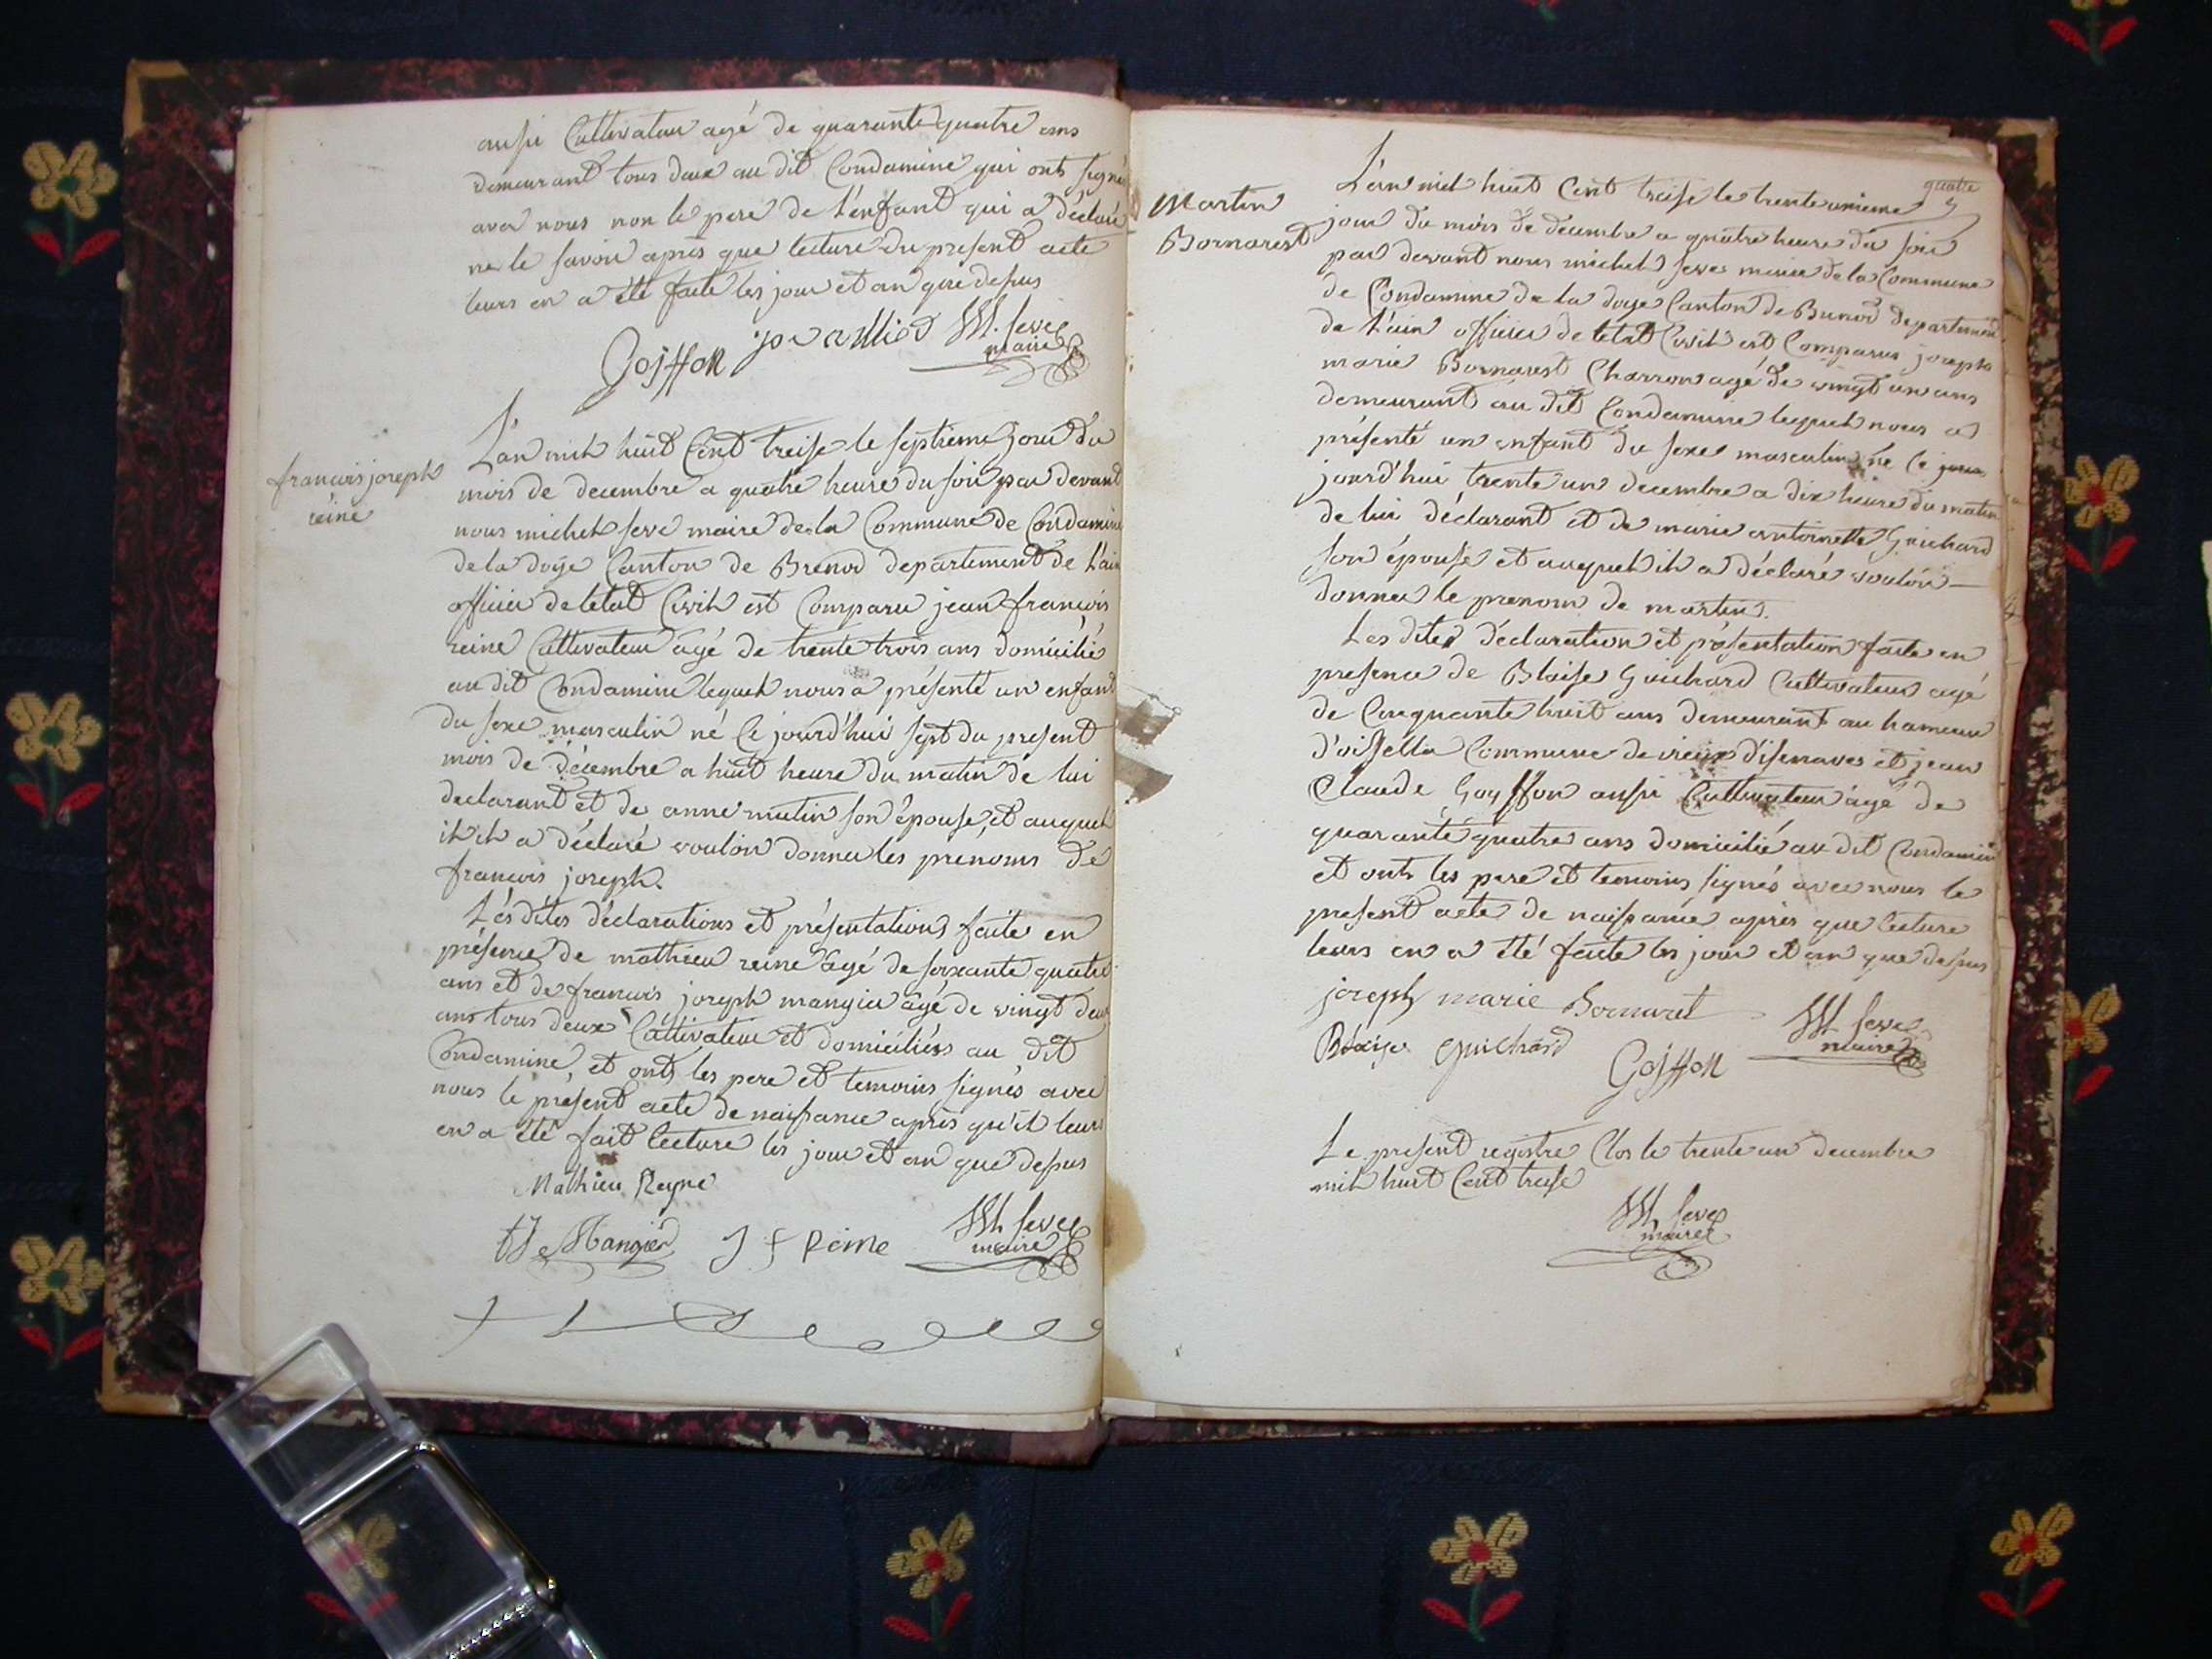 aussi Cultivateur agé de quarante quatre ans
demeurant tous deux au dit Condamine qui ont signé
avec nous non le pere de l'enfant qui a déclaré
ne le savoir après que lecture du present acte
leurs en a été faite les jour et an que dessus
Gojffon M. seve
maire
francois joseph
reine
L'an mil huit Cent treise le septieme jour du
mois de decembre a quatre heure du soir par devant
nous michel seve maire de la Commune de Condamine
de la doye Canton de Brenod departement de l'ain
officier de letat Civil est Comparu jean francois
reine Cultivateur âgé de trente trois ans domicilié
au dit Condamine lequel nous a présenté un enfant
du sexe masculin né Ce jourd'hui sept du present
mois de décembre a huit heure du matin de lui
declarant et de anne mutin son épouse, et auquel
il il a déclaré vouloir donner les prenoms de
francois joseph.
Lés dites déclarations et présentations faite en
présence de mathieu reine âgé de soixante quatre
ans et de francois joseph mangier âgé de vingt deux
ans tous deux Cultivateur et domiciliés au dit
Condamine, et ont les pere et temoins signés avec
nous le présent acte de naissance après qu'il leurs
en a été fait lecture les jour et an que dessus
Mathieu Reyne
fJ Mangier J f Reine M seve
maire
quatre
Martin
Bornarest
L'an mil huit Cent treise le trente unieme
jour du mois de decembre a quatre heure du soir
par devant nous michel seve maire de la Commune
de Condamine de la doye Canton de Brenod departement
de l'ain officier de letat Civil est Comparus joseph
marie Bornarest Charron agé de vingt un ans
demeurant au dit Condamine lequel nous a
présenté un enfant du sexe masculin né ce jour
jourd'hui trente un decembre a dix heure du matin
de lui déclarant et de marie antoinette Guichard
son épouse et auquel il a déclaré vouloir
donner le prenom de martin.
Les dites déclaration et présentation faite en
presence de Blaise Guichard Cultivateur agé
de Cinquante huit ans demeurant au hameau
d'oissella Commune de vieux d'isenaves et jean
Claude Goyffon aussi Cultivateur âgé de
quarante quatre ans domicilié au dit Condamine
et ont les pere et temoins signés avec nous le
present acte de naissance après que lecture
leurs en a été faite les jour et an que dessus
joseph marie Bornaret M seve
maire
Blaise Guichard Gojffon
Le present registre Clos le trente un decembre
mil huit Cent treise
M seve
maire